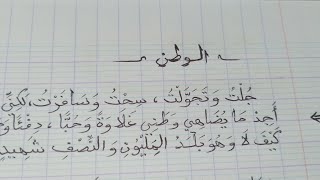 الوطن
جُلْتُ وَتَجَوَّلْتُ، سِحْتُ وَسَافَرْتُ، لَكِنِّي
أَجِدْ مَا يُضَاهِي وَطَنِي غَلَاوَةً وَحُبًّا، دِفْئًا وَ
كَيْفَ لَا وَهُوَ بَلَدُ المِلْيُونِ وَالنِّصْفِ شَهِيدٍ